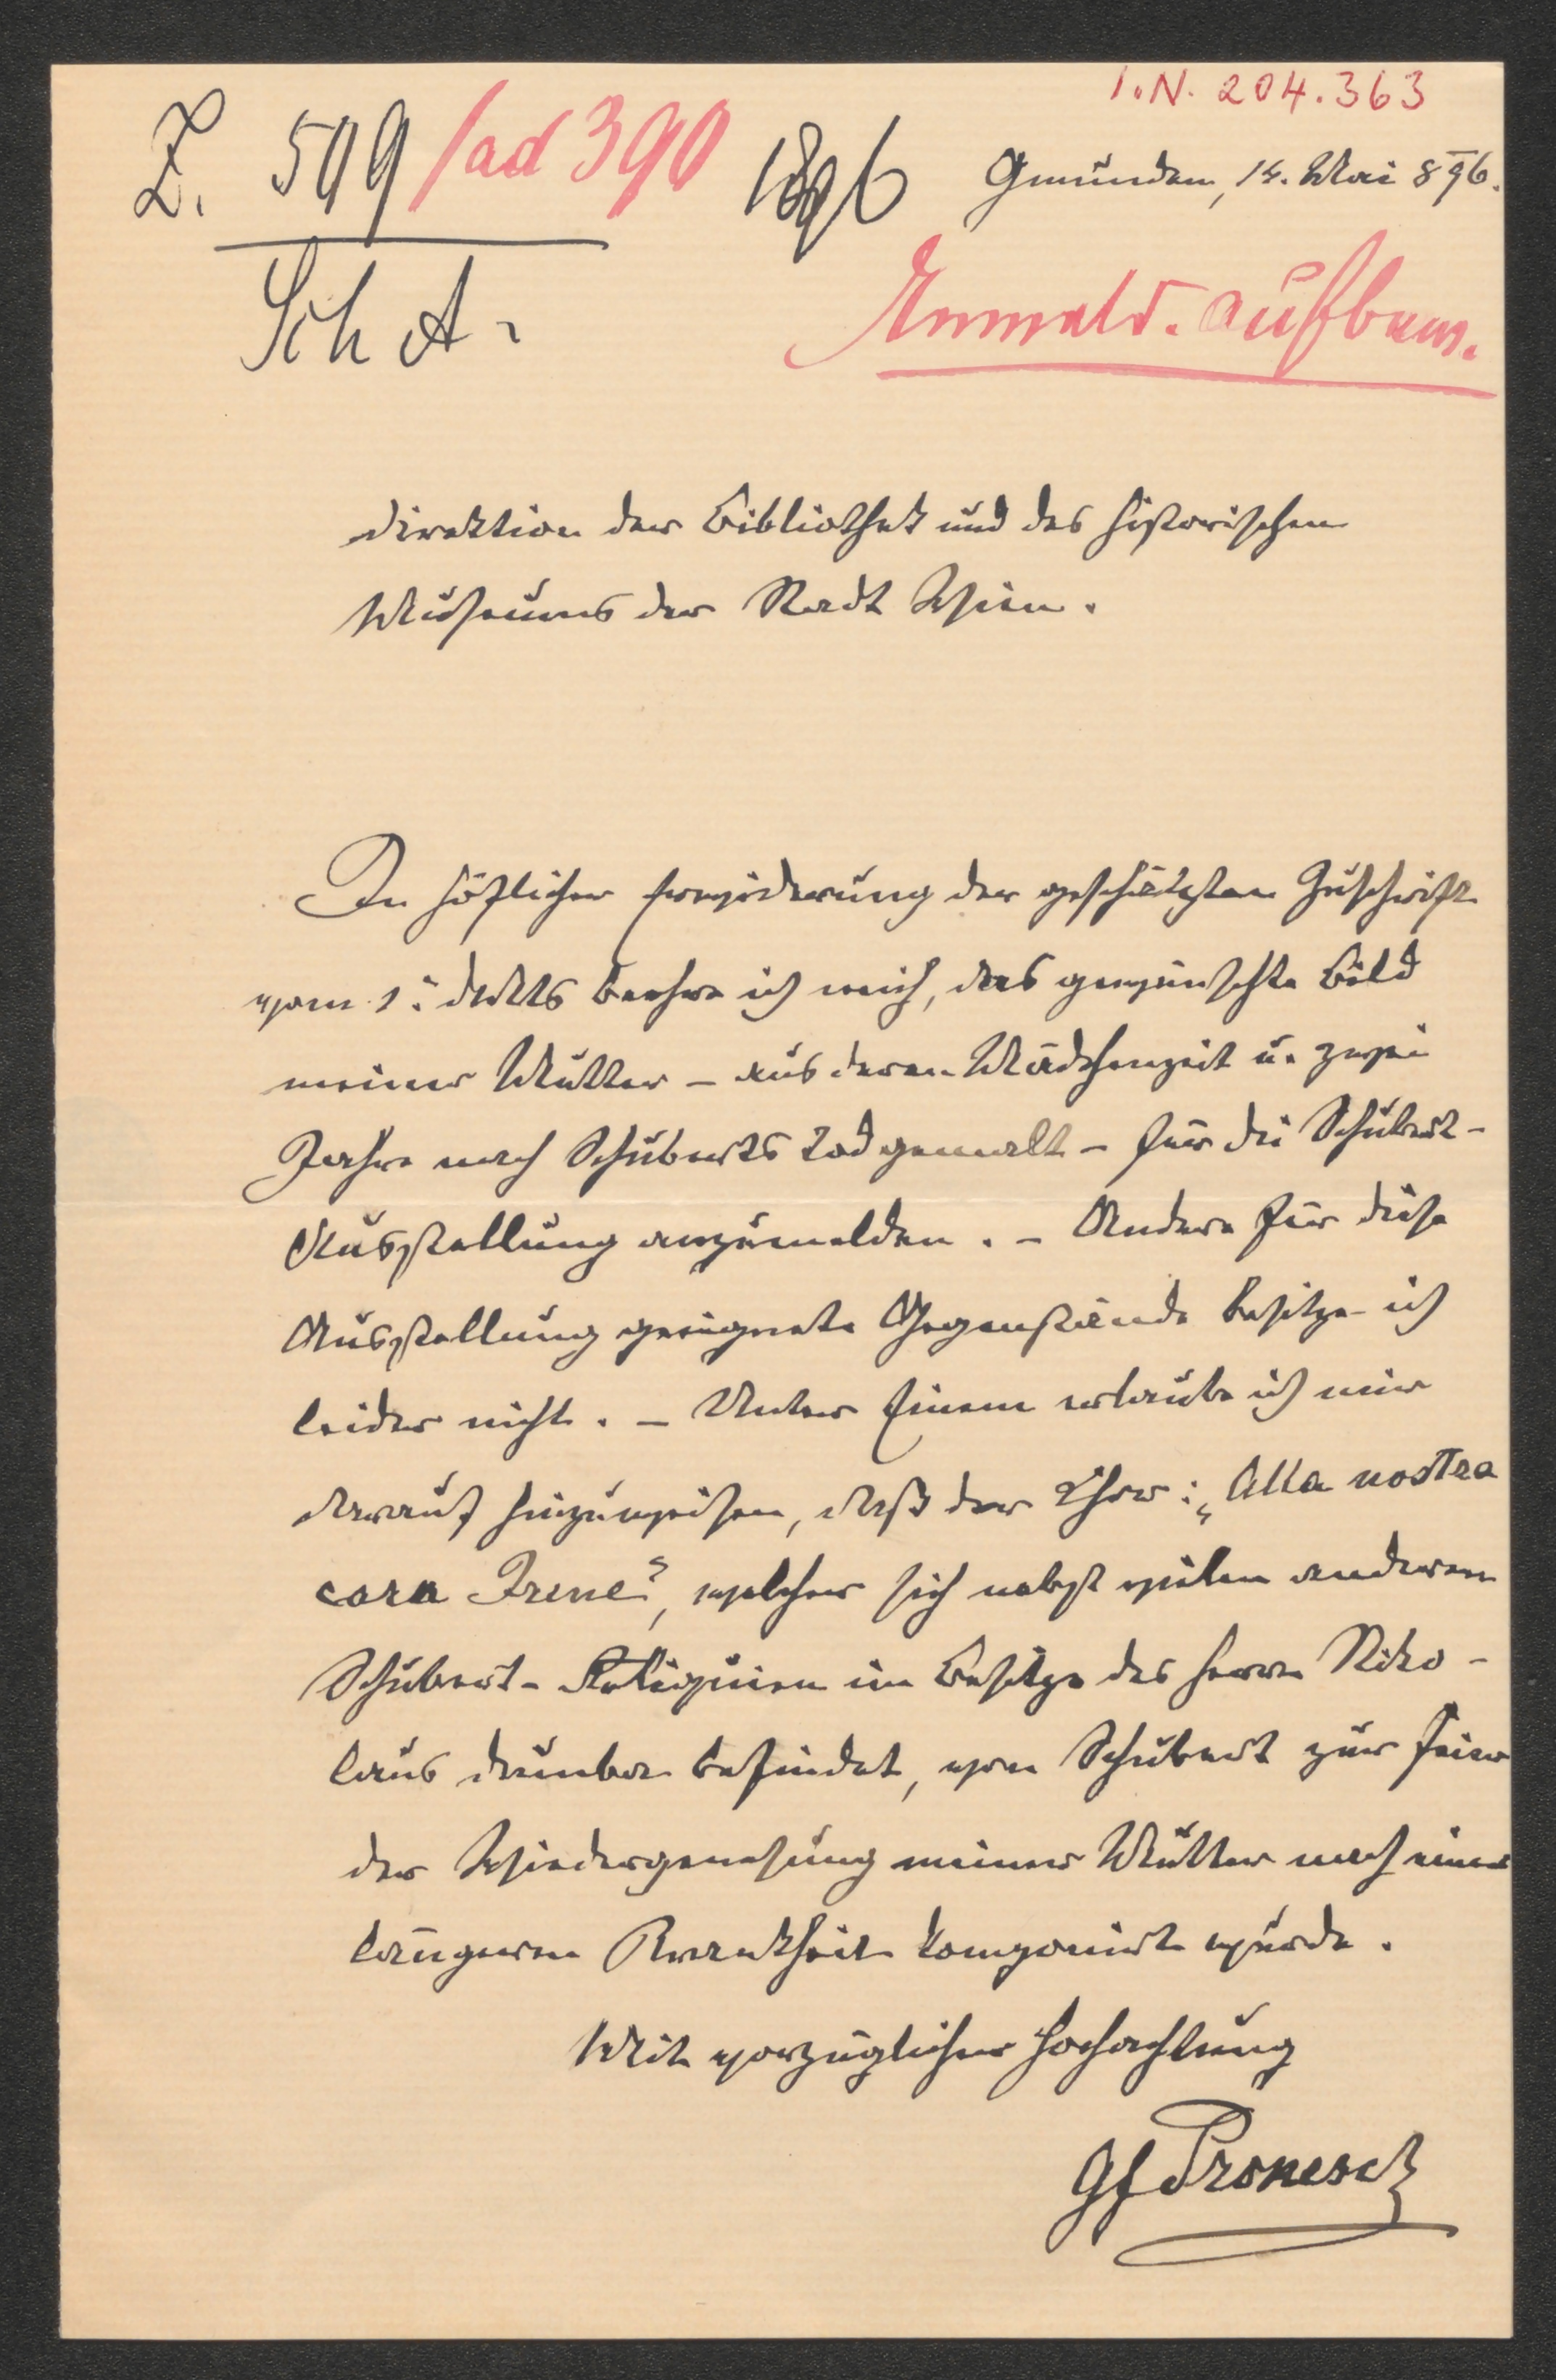 I.N. 204.363
Z. 509/ad 390 1896
Gmunden, 14. Mai 896.
Sch A.
Anmeld. aufbew.
Direktion der Bibliothek und des historischen
Museums der Stadt Wien.
In höflicher Erwiderung der geschätzten Zuschrift
vom 1. beehre ich mich, das gewünschte Bild
meiner Mutter – aus deren Mädchenzeit u. zwei
Jahre nach Schuberts Tod gemalt – für die Schubert-
Ausstellung anzumelden. – Andere für diese
Ausstellung geeignete Gegenstände besitze ich
leider nicht. – Unter Einem erlaube ich mir
darauf hinzuweisen, daß der Chor: „Alla nostra
cara Irene", welcher sich nebst vielen anderen
Schubert-Reliquien im Besitze des Herrn Niko-
laus Dumba befindet, von Schubert zur Feier
der Wiedergenesung meiner Mutter nach einer
längeren Krankheit komponirt wurde.
Mit vorzüglicher Hochachtung
Gf Prokesch